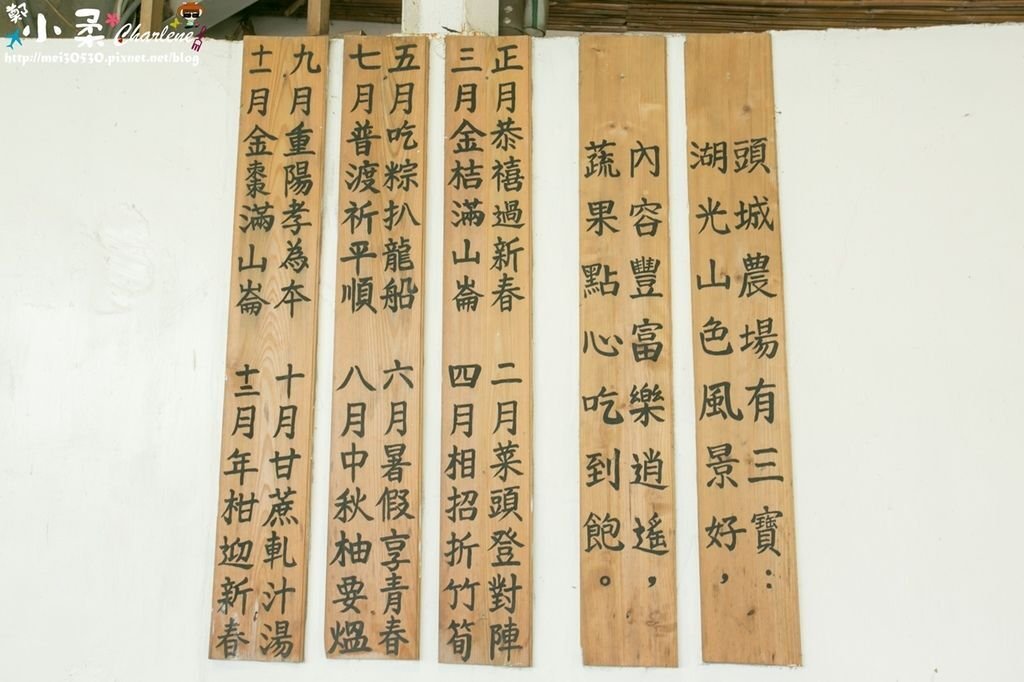 鄭小柔 Charlene
http://mei30530.pixnet.net/blog
頭城農場有三寶：
湖光山色風景好，
內容豐富樂逍遙，
蔬果點心吃到飽。
正月恭禧過新春
二月菜頭登對陣
三月金桔滿山崙
四月相招折竹筍
五月吃粽扒龍船
六月暑假享青春
七月普渡祈平順
八月中秋柚要熅
九月重陽孝為本
十月甘蔗軋汁湯
十一月金棗滿山崙
十二月年柑迎新春